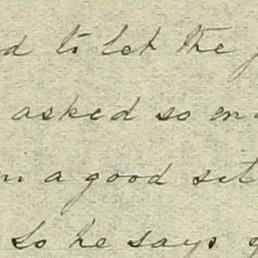 to let the
asked so
a good
so he says